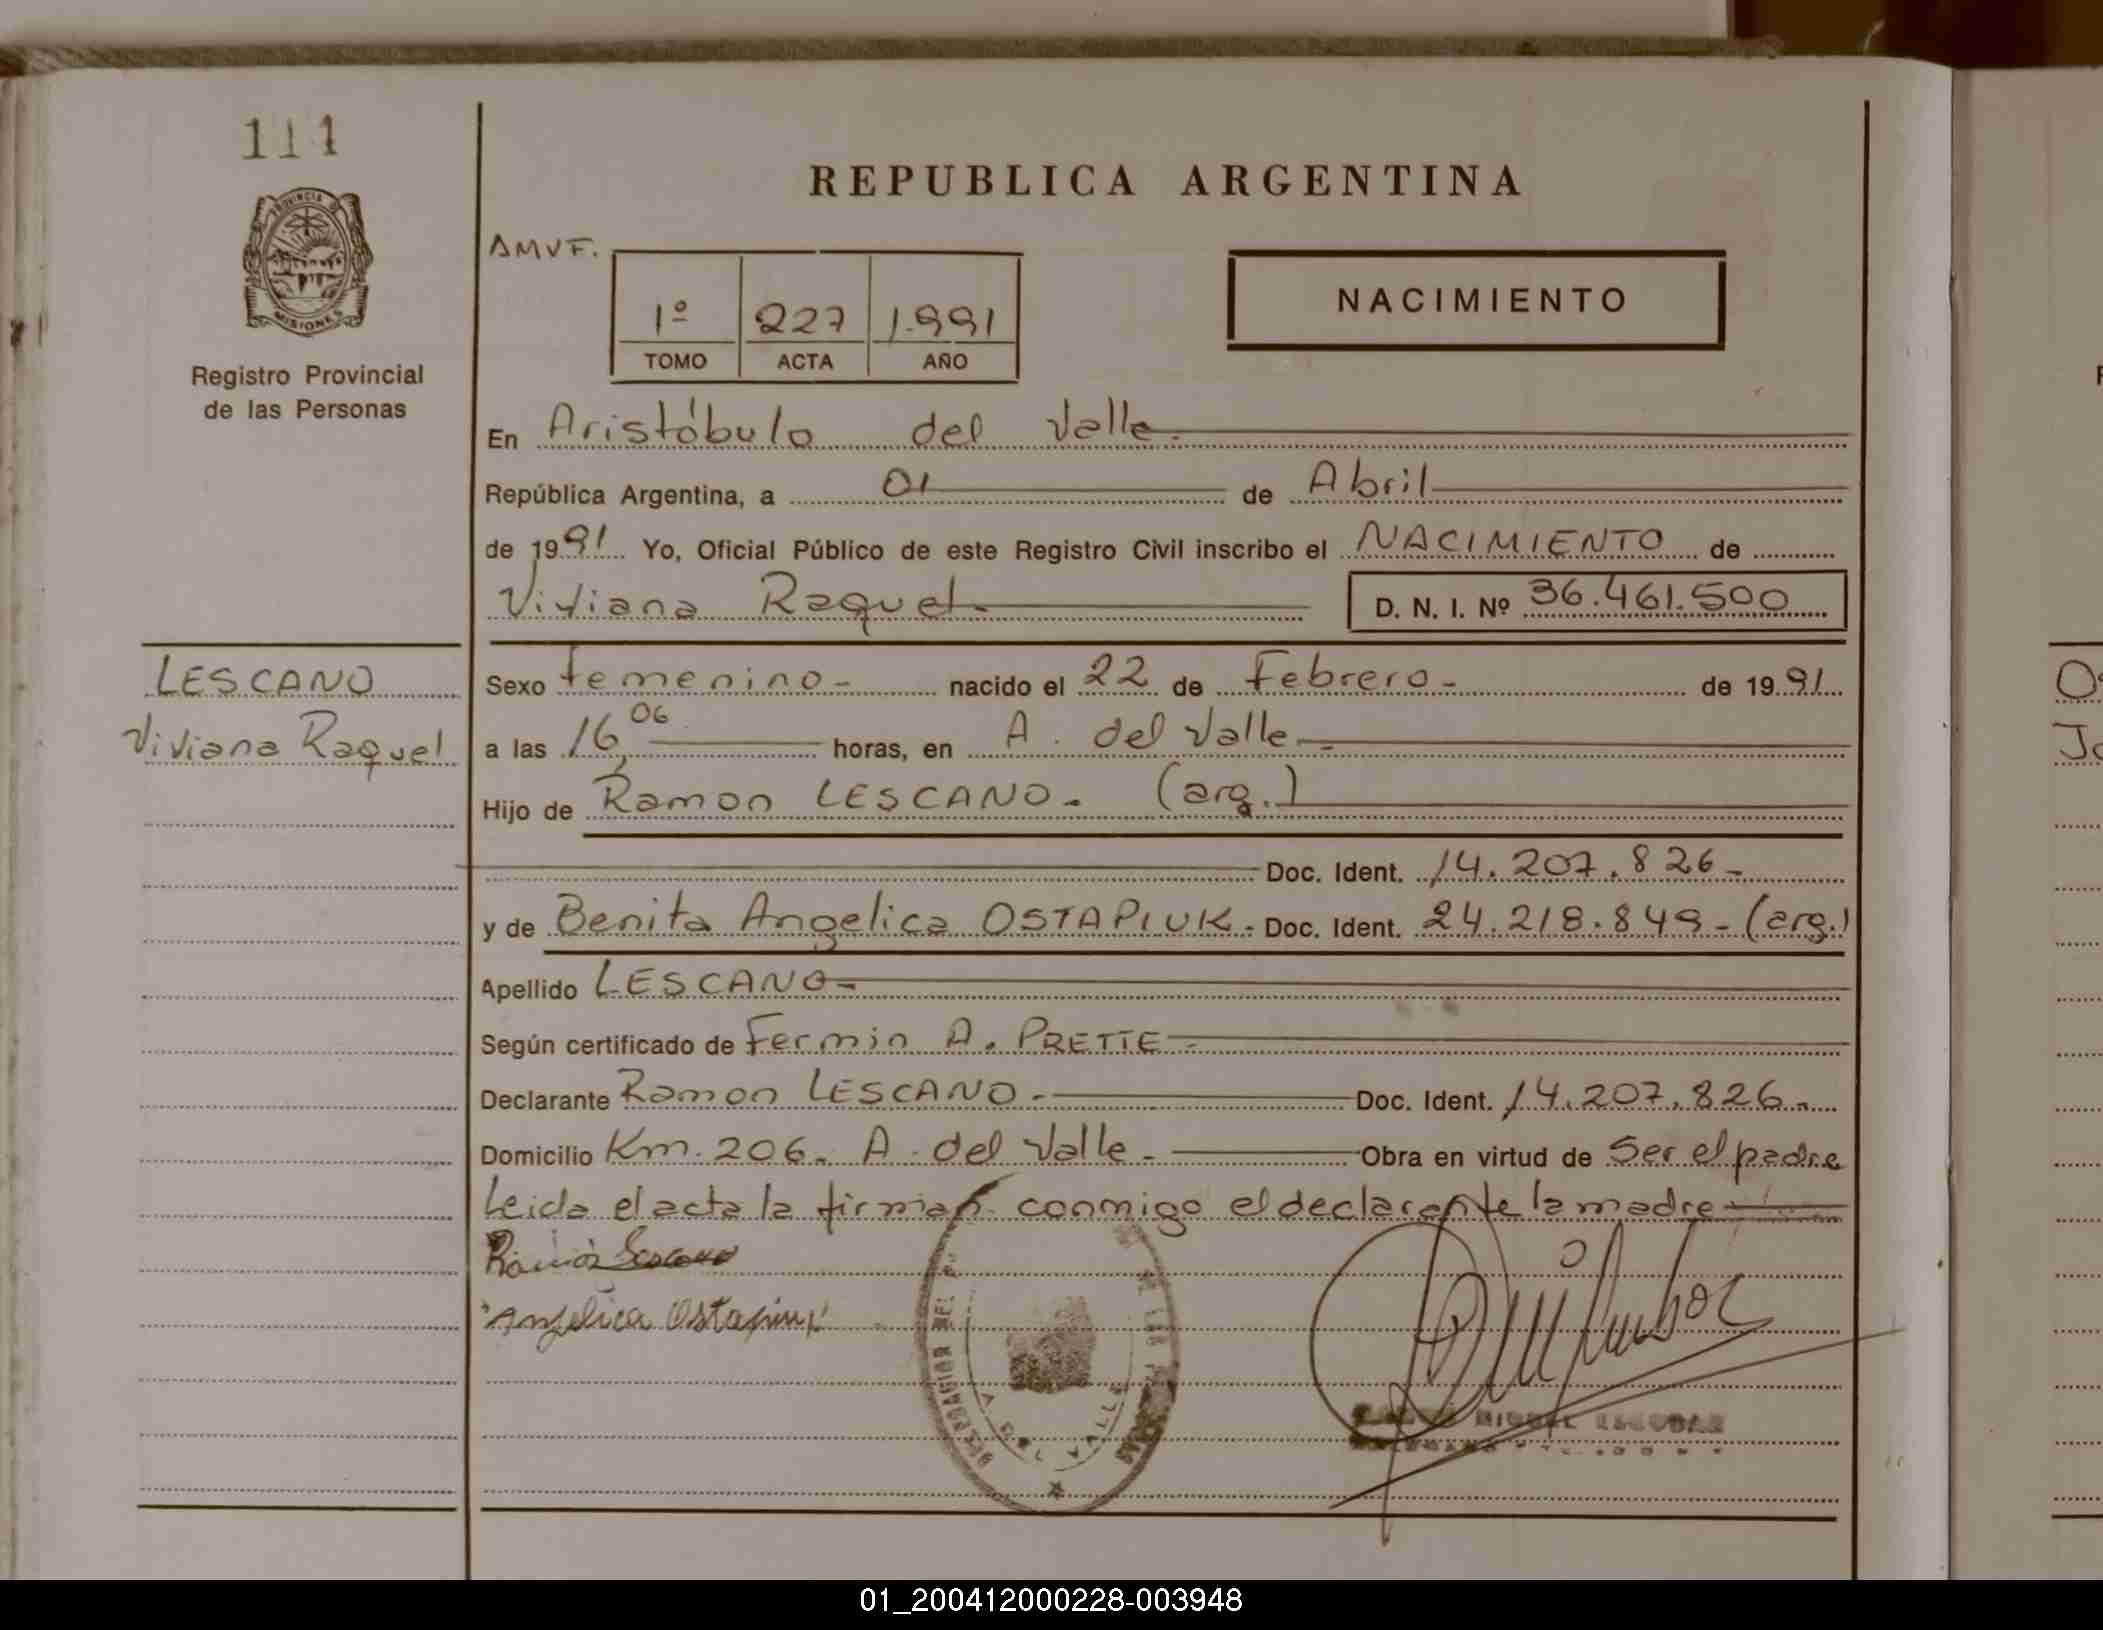 111
PROVINCIA DE
MISIONES
Registro Provincial
de las Personas
LESCANO
Viviana Raquel
REPUBLICA ARGENTINA
AMVF.
1º 227 1.991
TOMO ACTA AÑO
NACIMIENTO
En Aristóbulo del Valle.
República Argentina, a 01 de Abril
de 1991 Yo, Oficial Público de este Registro Civil inscribo el NACIMIENTO de
Viviana Raquel.- D. N. I. Nº 36.461.500
Sexo femenino- nacido el 22 de Febrero- de 1991
a las 16,06 horas, en A. del Valle-
Hijo de Ramon LESCANO. (arg.)
Doc. Ident. 14.207.826-
y de Benita Angelica OSTAPIUK. Doc. Ident. 24.218.849-(arg.)
Apellido LESCANO-
Según certificado de Fermin A. PRETTE-
Declarante Ramon LESCANO.- Doc. Ident. 14.207.826-
Domicilio Km. 206. A. del Valle.- Obra en virtud de Ser el padre
Leida el acta la firman conmigo el declarante la madre
Ramón Lescano
Angelica Ostapiuk
DELEGACION DEL DE LAS
A DEL VALLE
MIGUEL ESCOBAR
O
Ja
01_200412000228-003948